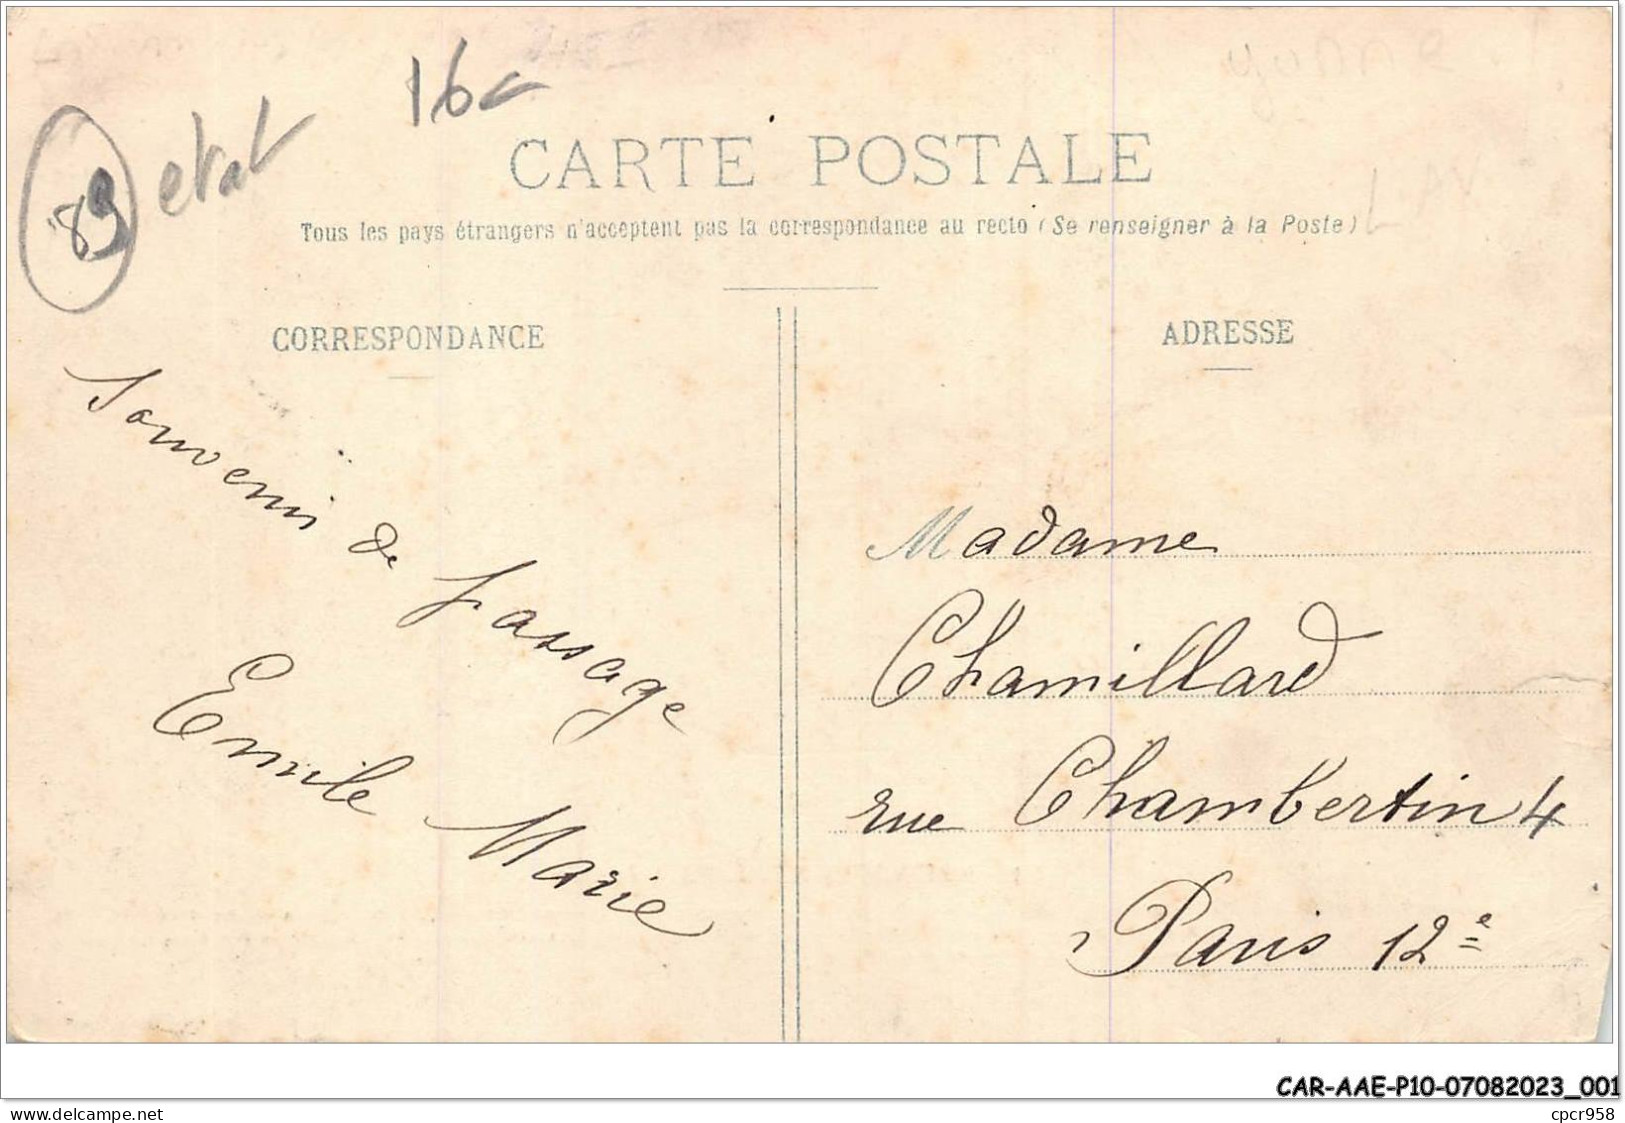 yonne
16
89 etat
CARTE POSTALE
Tous les pays étrangers n'acceptent pas la correspondance au recto (Se renseigner à la Poste)
CORRESPONDANCE
Souvenir de
passage
Emile Marie
ADRESSE
Madame
Chamillard
rue Chambertin 4
Paris 12e
CAR-AAE-P10-07082023_001
www.delcampe.net
cpcr958